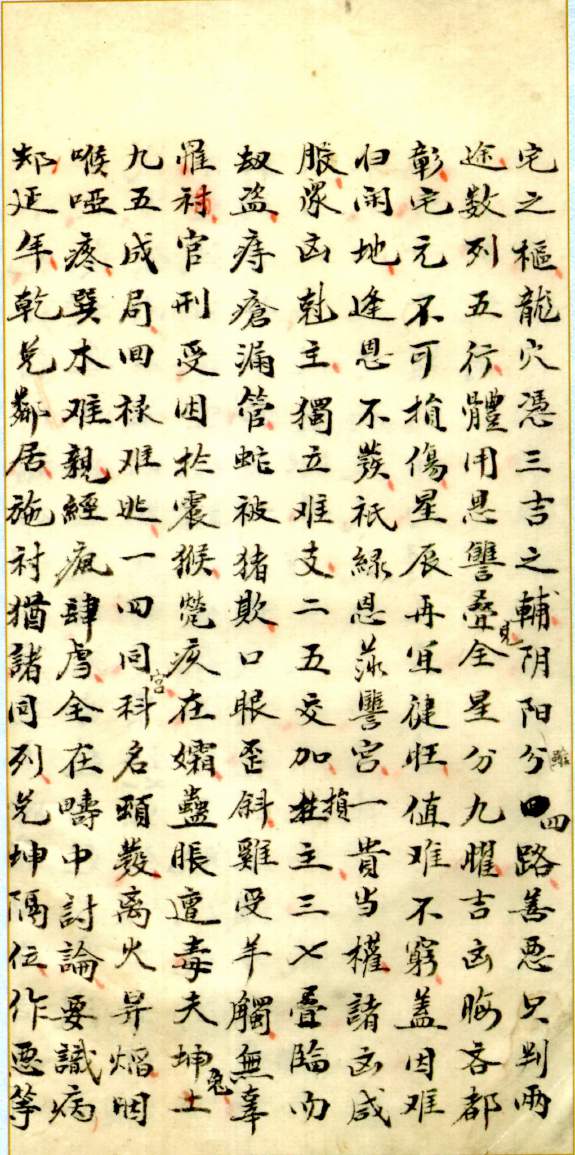 宅之樞龍穴憑三吉之輔阴阳兮雖四路善惡只判兩
途数列五行體用恩讐叠見全星分九曜吉凶晦吝都
彰宅元不可損傷星辰再宜健旺值难不窮盖因难
归闲地逢恩不發祇緑恩落讐宮一貴当權諸凶咸
服眾凶尅主獨立难支二五交加損主三七叠臨而
刼盗痔瘡漏管蛇被猪欺口眼歪斜雞受羊觸無辜
惟討官刑受困扵震猴煢疾在孀蠱脹遭毒夫坤土兔
九五成局回禄难逃一四同宮科名頭發离火昇熖因
喉哑疼巽木难親經瘋肆虐全在疇中討論要識病
郑延年乾兌鄰居施討猶諸同列兌坤隅位作惡等